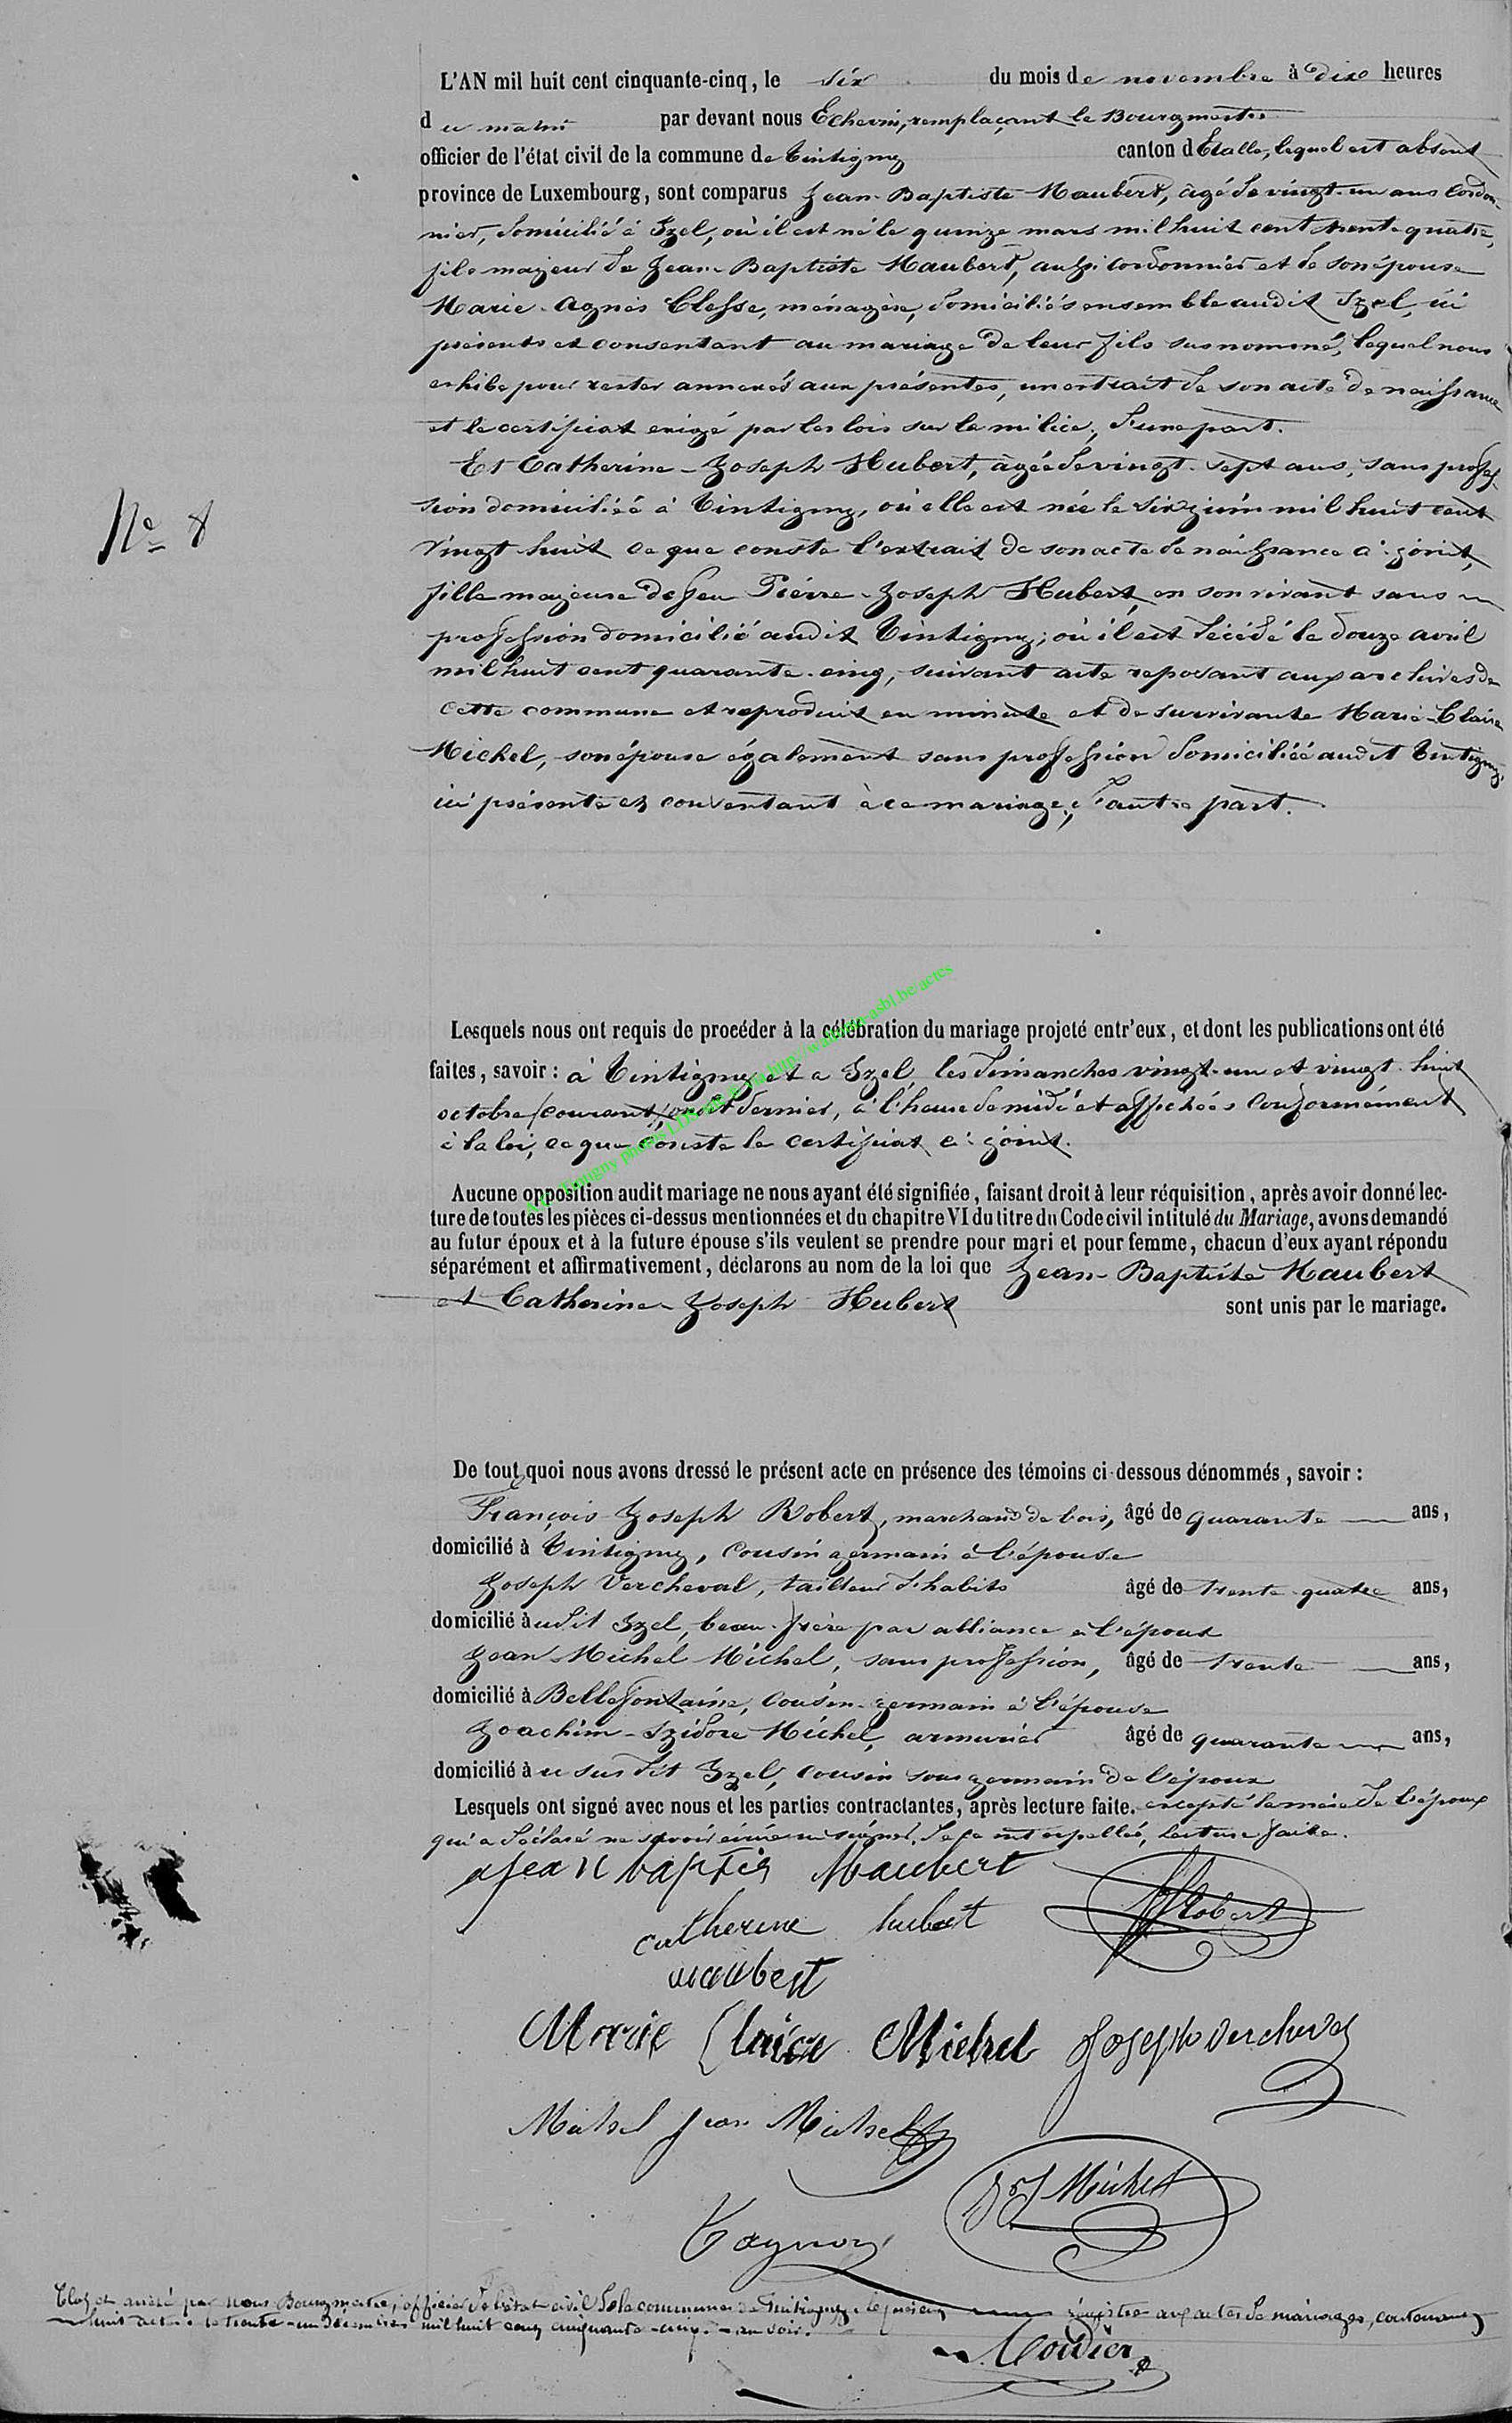 L'AN mil huit cent cinquante-cinq, le six du mois de novembre à dix heures
du matin par devant nous Echevin, remplaçant le Bourgmestre
officier de l'état civil de la commune de Tintigny canton d'Etalle, lequel est absent
province de Luxembourg, sont comparus Jean-Baptiste Maubert, agé de vingt-un ans Cordon-
nier, domicilié à Izel, où il est né le quinze mars mil huit cent trente quatre,
fils majeur de Jean-Baptiste Maubert, aussi cordonnier et de son épouse
Marie-Agnès Clesse, ménagère, domiciliés ensemble audit Izel, ici
présents et consentant au mariage de leur fils susnommé, lequel nous
exhibe pour rester annexés aux présentes, un extrait de son acte de naissance
et le certificat exigé par les lois sur la milice; d'une part.
Et Catherine-Joseph Hubert, agée de vingt-sept ans, sans profes-
sion domiciliée à Tintigny, où elle est née le six juin mil huit cent
vingt huit ce que conste l'extrait de son acte de naissance ci-joint,
N° 8
fille majeure de feu Pierre-Joseph Hubert, en son vivant sans
profession domicilié audit Tintigny; où il est décédé le douze avril
mil huit cent quarante-cinq, suivant acte reposant aux archives de
cette commune et reproduit en minute et de survivante Marie-Claire
Michel, son épouse également sans profession domiciliée audit Tintigny,
ici présente et consentant à ce mariage; d'autre part.
Lesquels nous ont requis de procéder à la célébration du mariage projeté entr'eux, et dont les publications ont été
faites, savoir: à Tintigny et a Izel, les dimanches vingt-un et vingt-huit
octobre (courant) dernier, à l'heure de midi et affichées conformément
à la loi, ce que conste le certificat ci-joint.
Tintigny photos http://wallonia-asbl.be/actes
Aucune opposition audit mariage ne nous ayant été signifiée, faisant droit à leur réquisition, après avoir donné lec-
ture de toutes les pièces ci-dessus mentionnées et du chapitre VI du titre du Code civil intitulé du Mariage, avons demandé
au futur époux et à la future épouse s'ils veulent se prendre pour mari et pour femme, chacun d'eux ayant répondu
séparément et affirmativement, déclarons au nom de la loi que Jean-Baptiste Maubert
et Catherine-Joseph Hubert sont unis par le mariage.
De tout quoi nous avons dressé le présent acte en présence des témoins ci-dessous dénommés, savoir:
François-Joseph Robert, marchand de bois, âgé de quarante ans,
domicilié à Tintigny, Cousin germain à l'épouse
Joseph Vercheval, tailleur d'habits âgé de trente-quatre ans,
domicilié audit Izel, beau-frère par alliance à l'époux
Jean-Michel Michel, sans profession, âgé de trente ans,
domicilié à Bellefontaine, Cousin-germain à l'épouse
Joachim-Izidore Michel, armurier âgé de quarante ans,
domicilié au susdit Izel, cousin sous germain de l'époux
Lesquels ont signé avec nous et les parties contractantes, après lecture faite. excepté la mère de l'époux
qui a déclaré ne savoir écrire ni signer, de ce interpellée, lecture faite.
Jean baptis Maubert
catherine hubert
Robert
maubert
Marie Claire Michel Joseph Vercheval
Michel Jean Michel
J Michel
Tagnon
Clos et arrêté par nous Bourgmestre, officier de l'état civil de la commune de Tintigny le présent registre aux actes de mariages, contenant
huit actes le trente-un Décembre mil huit cent cinquante-cinq au soir.